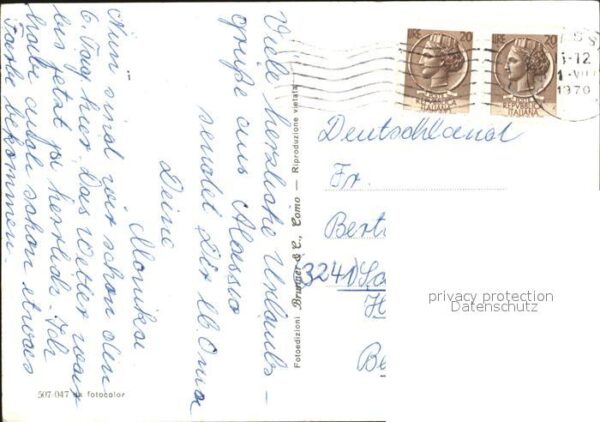 Viele herzliche Urlaubs-
grüße aus Alassio
sendet Dir lb. Oma
Deine
Monika
Nun sind wir schon den
6. Tag hier. Das Wetter war
bis jetzt ja herrlich. Ich
habe auch schon etwas
Farbe bekommen.
507/047 fotocolor
Fotoedizioni Brunner & C., Como — Riproduzione vietata
LIRE 20
REPUBBLICA
ITALIANA
LIRE 20
REPUBBLICA
ITALIANA
-12
1970
Deutschland
Fr.
Bert
3241 Sa
H
Be
privacy protection
Datenschutz